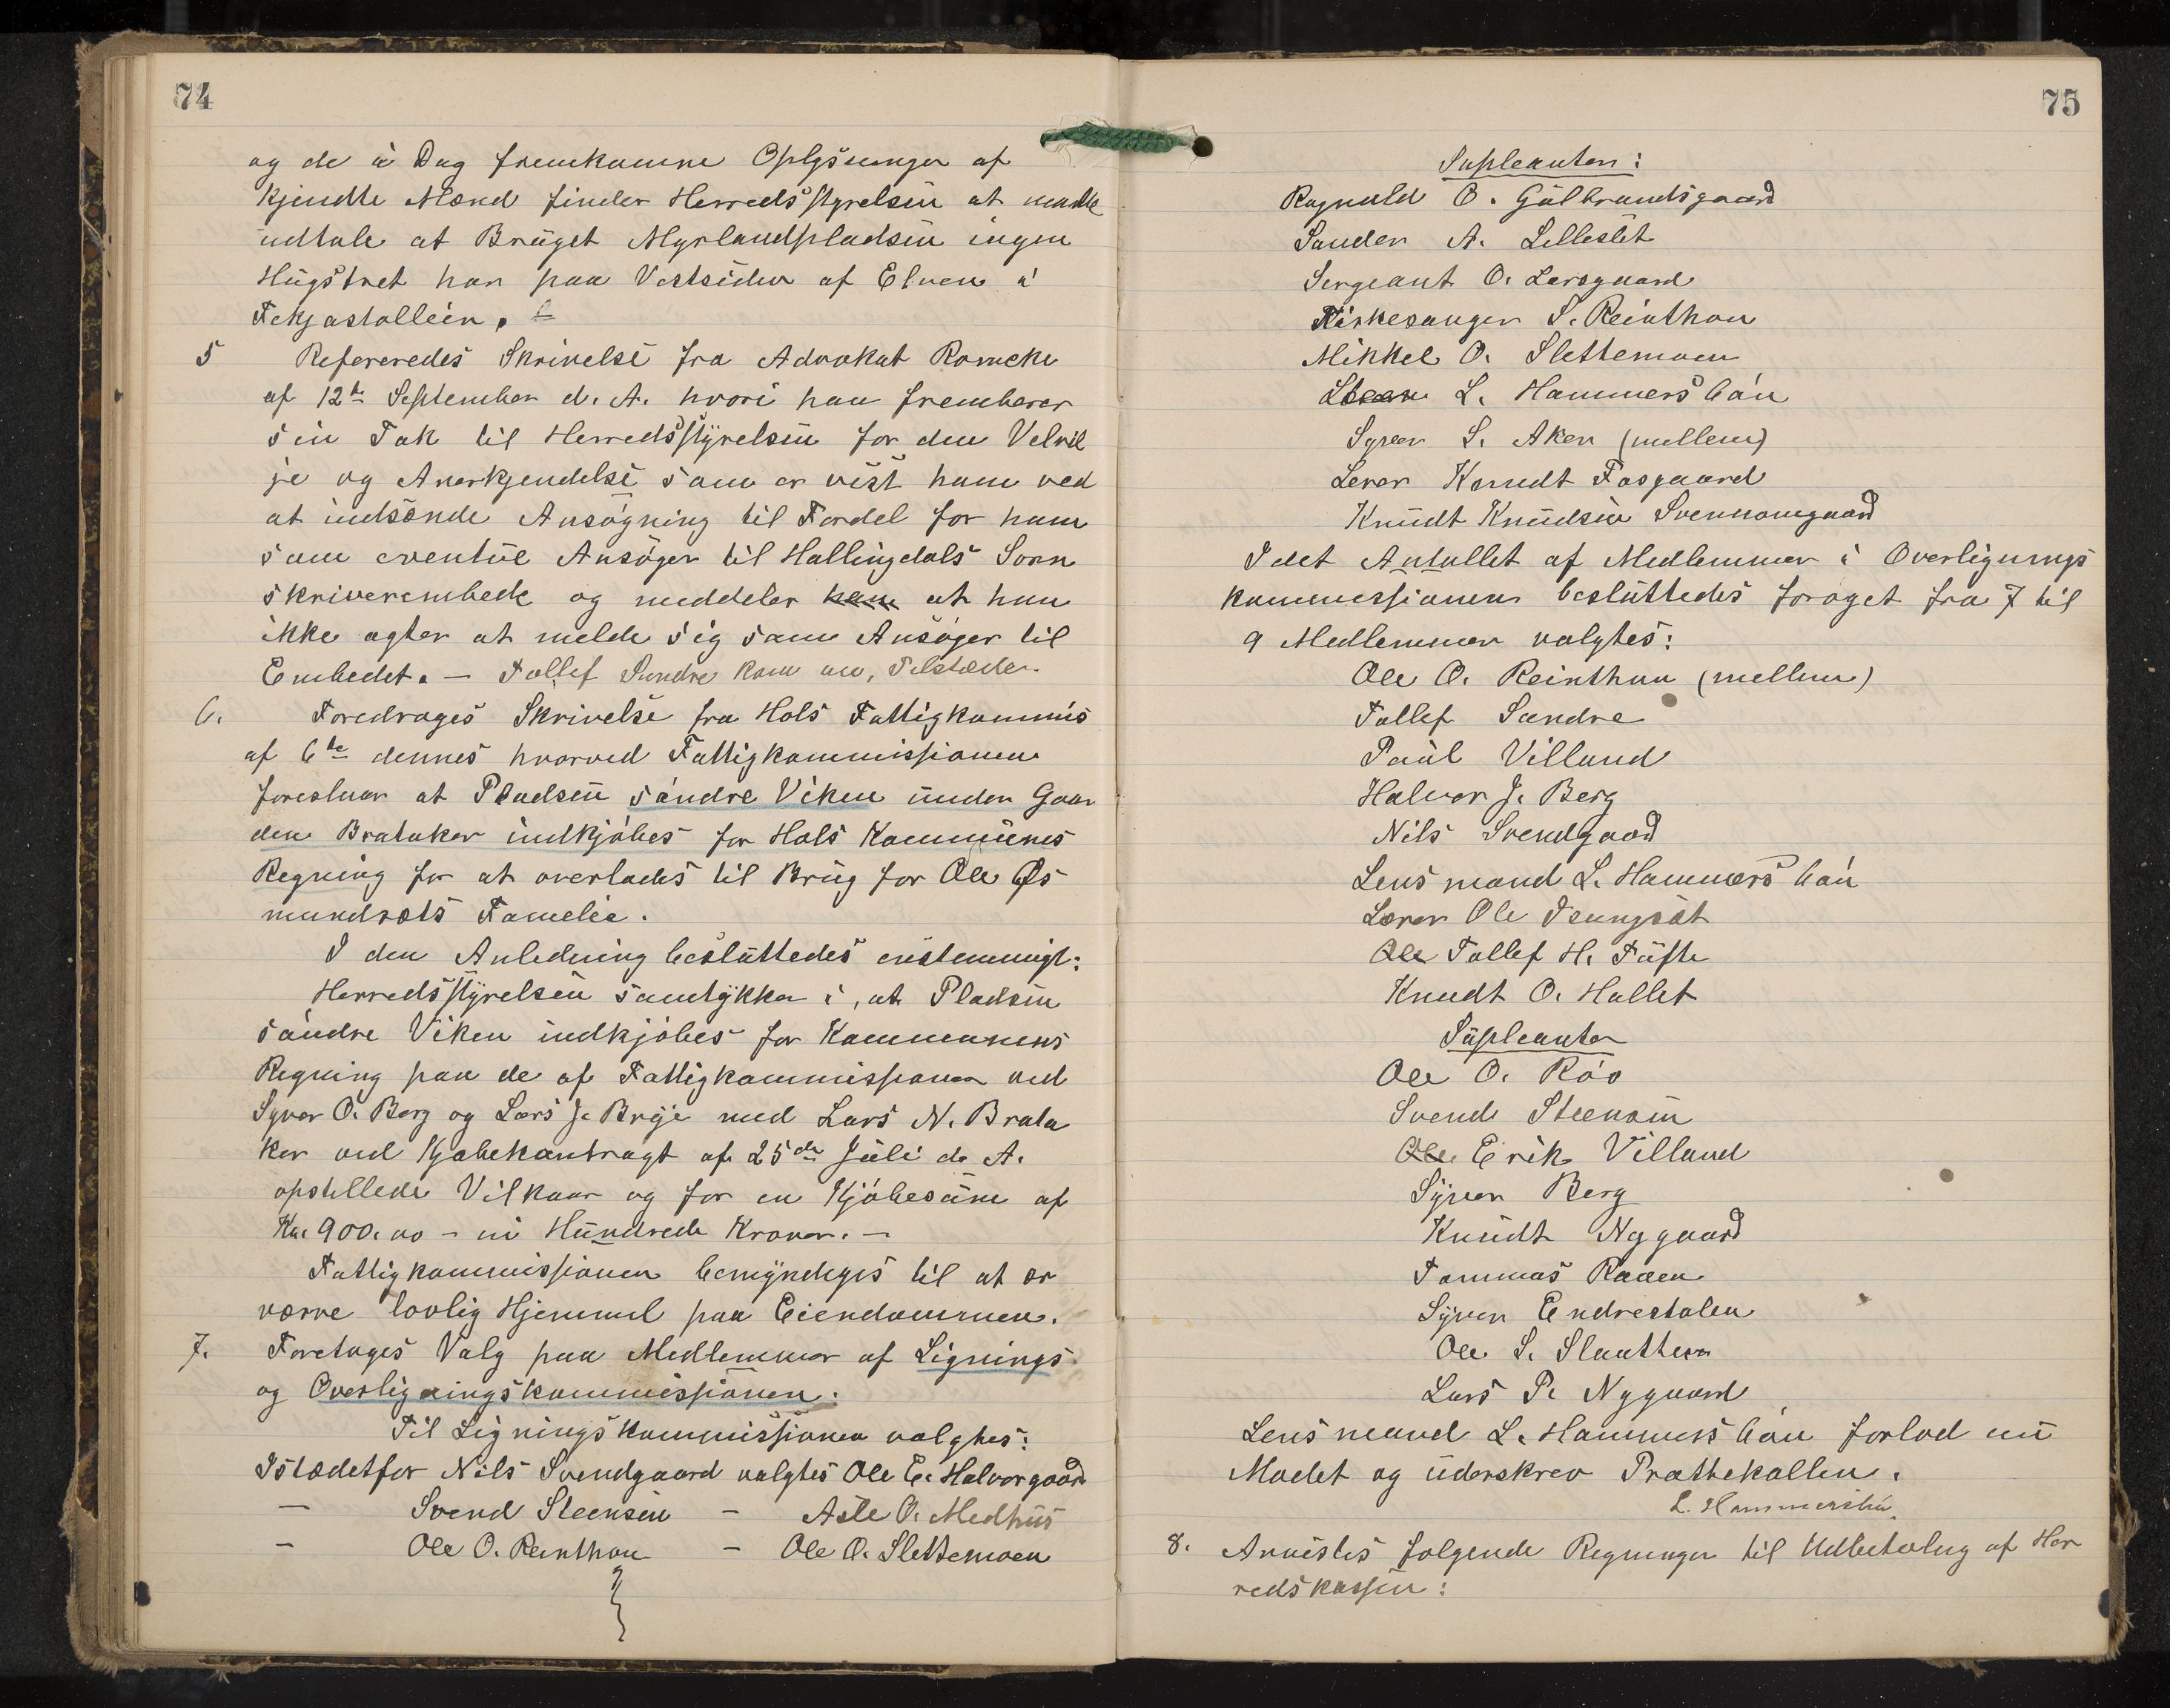 74
og de i Dag fremkomne Oplysninger af
kjendte Mænd finder Herredsstyrelsen at maatte
udtale at Bruget Myrlandpladsen ingen
Hugstret har paa Vestsiden af Elven i
Fekjastøllein.
5 Refereredes Skrivelse fra Advokat Romcke
af 12te September d. A. hvori han frembærer
sin Tak til Herredsstyrelsen for den Velvil
je og Anerkjendelse som er vist ham ved
at indsende Ansøgning til Fordel for ham
som eventuel Ansøger til Hallingdals Soren
skriverembede og meddeler ham at han
ikke agter at melde sig som Ansøger til
Embedet. – Tollef Sundre kom nu, Tilstæde.
6. Foredroges Skrivelse fra Hols Fattigkommis
af 6te dennes hvorved Fattigkommissionen
foreslaar at Pladsen søndre Viken under Gaar
den Brataker indkjøbes for Hols Kommunes
Regning for at overlades til Brug for Ole Øs
mundrets Familie.
I den Anledning besluttedes enstemmigt:
Herredsstyrelsen samtykker i, at Pladsen
søndre Viken indkjøbes for Kommunens
Regning paa de af Fattigkommissionen ved
Syver O. Berg og Lars J. Brøje med Lars N. Brata
ker ved Kjøbekontragt af 25de Juli d. A.
opstillede Vilkaar og for en Kjøbesum af
Kr. 900.00 – ni Hundrede Kroner. –
Fattigkommissionen bemyndiges til at er
verve lovlig Hjemmel paa Eiendommen.
7. Foretoges Valg paa Medlemmer af Lignings
og Overligningskommissionen.
Til Ligningskommissionen valgtes:
Istædetfor Nils Svendgaard valgtes Ole E. Halvorgaard
– Svend Steensen – Asle O. Medhus
– Ole O. Reinthon – Ole O. Slettemoen
75
Supleanter:
Ragnvald O. Gulbrandsgaard
Sander A. Lilleslet
Sergeant O. Larsgaard
Kirkesanger S. Reinthon
Mikkel O. Slettemoen
L. Hammersbøn
Syver S. Aker (mellem)
Lærer Knudt Fosgaard
Knudt Knudsen Svennomgaard
Idet Antallet af Medlemmer i Overlignings
kommissionen besluttedes forøget fra 7 til
9 Medlemmer valgtes:
Ole O. Reinthon (mellem)
Tollef Sundre
Paul Villand
Halvor J. Berg
Nils Svendgaard
Lensmand L. Hammersbøn
Lærer Ole Tsungsat
Ole Tollef H. Tufte
Knudt O. Hallet
Supleanter
Ole O. Röo
Svend Steensen
Ole Erik Villand
Syver Berg
Knudt Nygaard
Tommas Raaen
Syver Endrestølen
Ole S. Slaatthem
Lars P. Nygaard
Lensmand L. Hammersbøn forlod nu
Mødet og underskrev Prottekollen.
L. Hammersbøn
8. Anvistes følgende Regninger til Udbetaling af Her
redskassen: